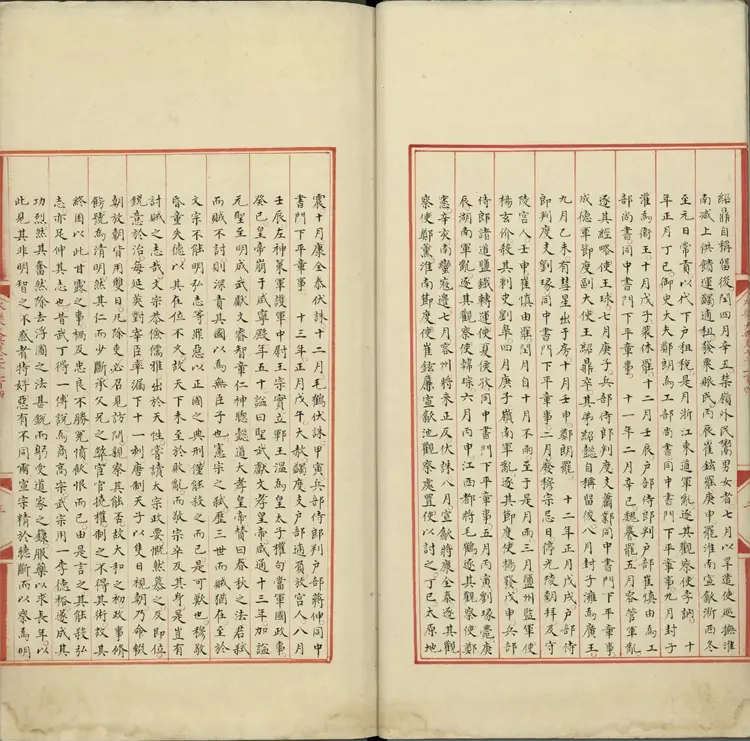 紹鼎自稱留後閏四月辛丑禁嶺外民鬻男女者七月以旱遣使巡撫淮
南減上供饋運蠲逋租發粟賑民丙辰崔鉉罷庚申罷淮南宣歙浙西冬
至元日常貢以代下戶租稅是月浙江東道軍亂逐其觀察使李訥　十
年正月丁巳御史大夫鄭朗為工部尚書同中書門下平章事九月封子
灌為衛王十月戊子裴休罷十二月壬辰戶部侍郎判戶部崔慎由為工
部尚書同中書門下平章事　十一年二月辛巳魏謩罷五月容管軍亂
逐其經略使王球七月庚子兵部侍郎判度支蕭鄴同中書門下平章事
成德軍節度副大使王紹鼎卒其弟紹懿自稱留後八月封子澭為廣王
九月乙未有彗星出于房十月壬申鄭朗罷　十二年正月戊戌戶部侍
郎判度支劉瑑同中書門下平章事二月廢穆宗忌日停光陵朝拜及守
陵宮人壬申崔慎由罷閏月自十月不雨至于是月雨三月鹽州監軍使
楊玄价殺其刺史劉皋四月庚子嶺南軍亂逐其節度使楊發戊申兵部
侍郎諸道鹽鐵轉運使夏侯孜同中書門下平章事五月丙寅劉瑑薨庚
辰湖南軍亂逐其觀察使韓琮六月丙申江西都將毛鶴逐其觀察使鄭
憲辛亥南蠻寇邊七月容州將來正反伏誅八月宣歙將康全泰逐其觀
察使鄭薰淮南節度使崔鉉兼宣歙池觀察處置使以討之丁巳太原地
震十月康全泰伏誅十二月毛鶴伏誅甲寅兵部侍郎判戶部蔣伸同中
書門下平章事　十三年正月戊午大赦蠲度支戶部逋負放宮人八月
壬辰左神策軍護軍中尉王宗實立鄆王溫為皇太子權句當軍國政事
癸巳皇帝崩于咸寧殿年五十謚曰聖武獻文孝皇帝咸通十三年加謚
元聖至明成武獻文睿智章仁神聰懿道大孝皇帝贊曰春秋之法君弒
而賊不討則深責其國以為無臣子也憲宗之弒歷三世而賊猶在至於
文宗不能明弘志等罪惡以正國之典刑僅能殺之而已是可歎也穆敬
昏童失德以其在位不久故天下未至於敗亂而敬宗卒及其身是豈有
討賊之志哉文宗恭儉儒雅出於天性嘗讀太宗政要慨然慕之及即位
銳意於治每延英對宰臣率漏下十一刻唐制天子以隻日視朝乃命輟
朝放朝皆用雙日凡除吏必召見訪問親察其能否故大和之初政事脩
飭號為清明然其仁而少斷承父兄之弊宦官撓權制之不得其術故其
終困以此甘露之事禍及忠良不勝冤憤飲恨而已由是言之其能殺弘
志亦足伸其志也昔武丁得一傅說為商高宗武宗用一李德裕遂成其
功烈然其奮然除去浮圖之法甚銳而躬受道家之籙服藥以求長年以
此見其非明智之不惑者特好惡有不同爾宣宗精於聽斷而以察為明